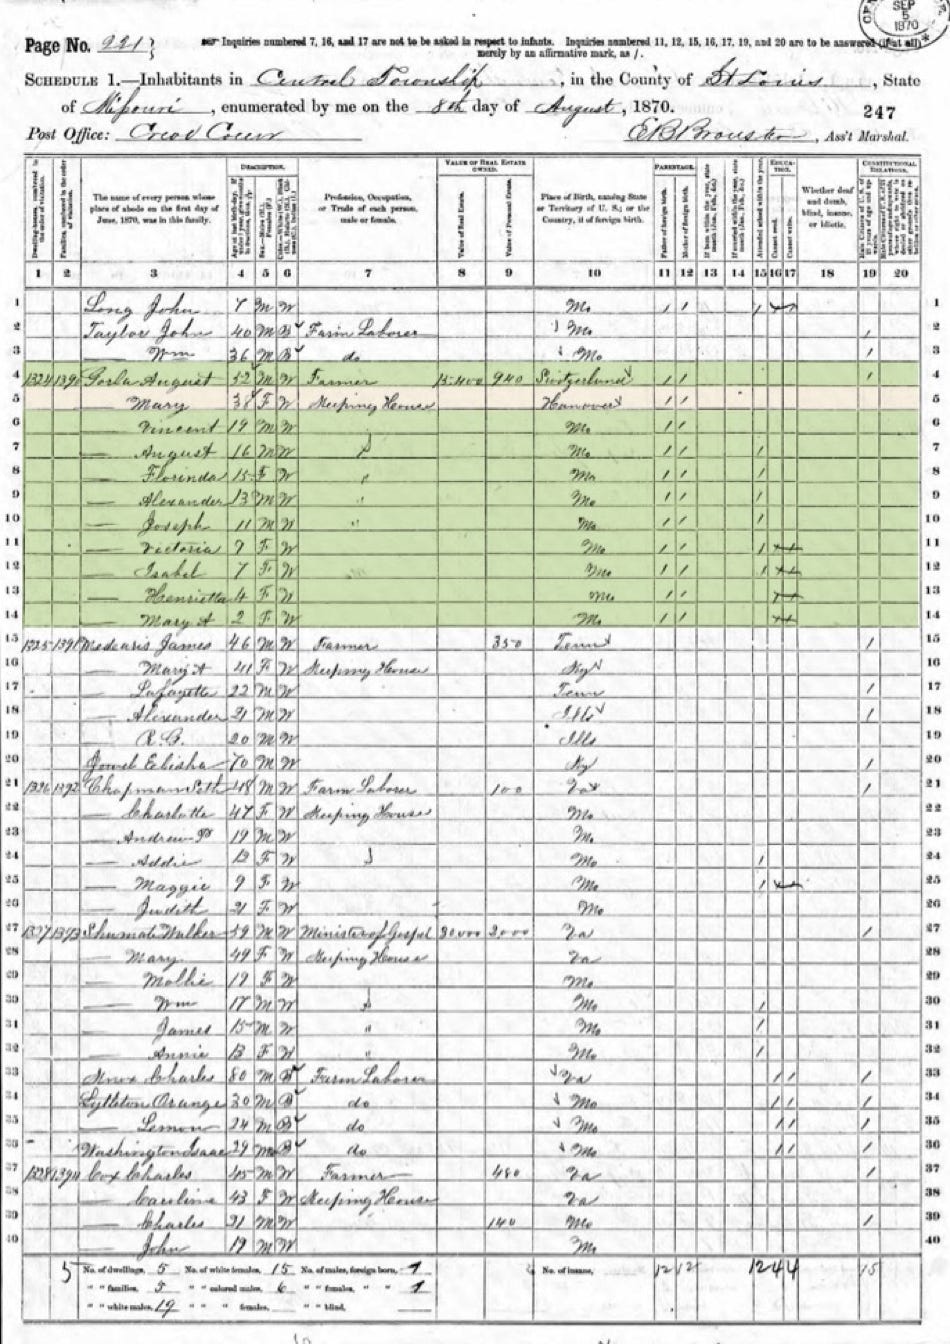 SEP
5
1870
Page No. 221
Inquiries numbered 7, 16, and 17 are not to be asked in respect to infants. Inquiries numbered 11, 12, 15, 16, 17, 19, and 20 are to be answered (if at all)
merely by an affirmative mark, as /.
SCHEDULE 1.—Inhabitants in Central Township, in the County of St Louis, State
of Missouri, enumerated by me on the 8th day of August, 1870.
247
Post Office: Creve Coeur
Ass't Marshal.
DESCRIPTION.
VALUE OF REAL ESTATE OWNED.
PARENTAGE.
EDUCATION.
CONSTITUTIONAL RELATIONS.
Dwelling-houses, numbered in the order of visitation.
Families, numbered in the order of visitation.
The name of every person whose place of abode on the first day of June, 1870, was in this family.
Profession, Occupation, or Trade of each person, male or female.
Value of Real Estate.
Value of Personal Estate.
Place of Birth, naming State or Territory of U. S.; or the Country, if of foreign birth.
Father of foreign birth.
Mother of foreign birth.
Attended school within the year.
Cannot read.
Cannot write.
Whether deaf and dumb, blind, insane, or idiotic.
1 2 3 4 5 6 7 8 9 10 11 12 13 14 15 16 17 18 19 20
1 Long John 7 M W Mo / / / 1
2 Taylor John 40 M B Farm Laborer Mo / 2
3 — Wm 36 M B do Mo / 3
4 1324 1390 August 52 M W Farmer 15400 940 Switzerland / / / 4
5 — Mary 38 F W Keeping House Hanover / / 5
6 — Vincent 19 M W Mo / / 6
7 — August 16 M W Mo / / / 7
8 — Florinda 15 F W " Mo / / / 8
9 — Alexander 13 M W " Mo / / / 9
10 — Joseph 11 M W " Mo / / / 10
11 — Victoria 9 F W Mo / / / 11
12 — Isabel 7 F W Mo / / / 12
13 — Henrietta 4 F W Mo / / 13
14 — Mary A 2 F W Mo / / 14
15 1325 1391 Medearis James 46 M W Farmer 350 Tenn / 15
16 — Mary A 41 F W Keeping House Ky 16
17 — Lafayette 22 M W Tenn / 17
18 — Alexander 21 M W Ills / 18
19 — 20 M W Ills 19
20 Elisha 70 M W Ky / 20
21 1326 1392 Chapman Seth 48 M W Farm Laborer 100 Va / 21
22 — Charlotte 47 F W Keeping House Mo 22
23 — Andrew 19 M W Mo 23
24 — Addie 13 F W Mo / 24
25 — Maggie 9 F W Mo / 25
26 — Judith 21 F W Mo 26
27 1327 1393 Shumate Walker 59 M W Minister of Gospel 30000 2000 Va / 27
28 — Mary 49 F W Keeping House Va 28
29 — Mollie 19 F W Mo 29
30 — Wm 17 M W Mo / 30
31 — James 15 M W " Mo / 31
32 — Annie 13 F W " Mo / 32
33 Knox Charles 80 M B Farm Laborer Va / / / 33
34 Lyttleton Orange 30 M B do Mo / / / 34
35 — Lemon 24 M B do Mo / / / 35
36 Washington Isaac 29 M B do Mo / / / 36
37 1328 1394 Cox Charles 45 M W Farmer 480 Va / 37
38 — Caroline 43 F W Keeping House Va 38
39 — Charles 21 M W 140 Mo / 39
40 — John 19 M W Mo 40
5 No. of dwellings, 5 No. of white females, 15 No. of males, foreign born, 1 No. of insane, 12 12 12 4 4 15
" " families, 5 " " colored males, 6 " " females, " " 1
" " white males, 19 " " " females, " " blind,